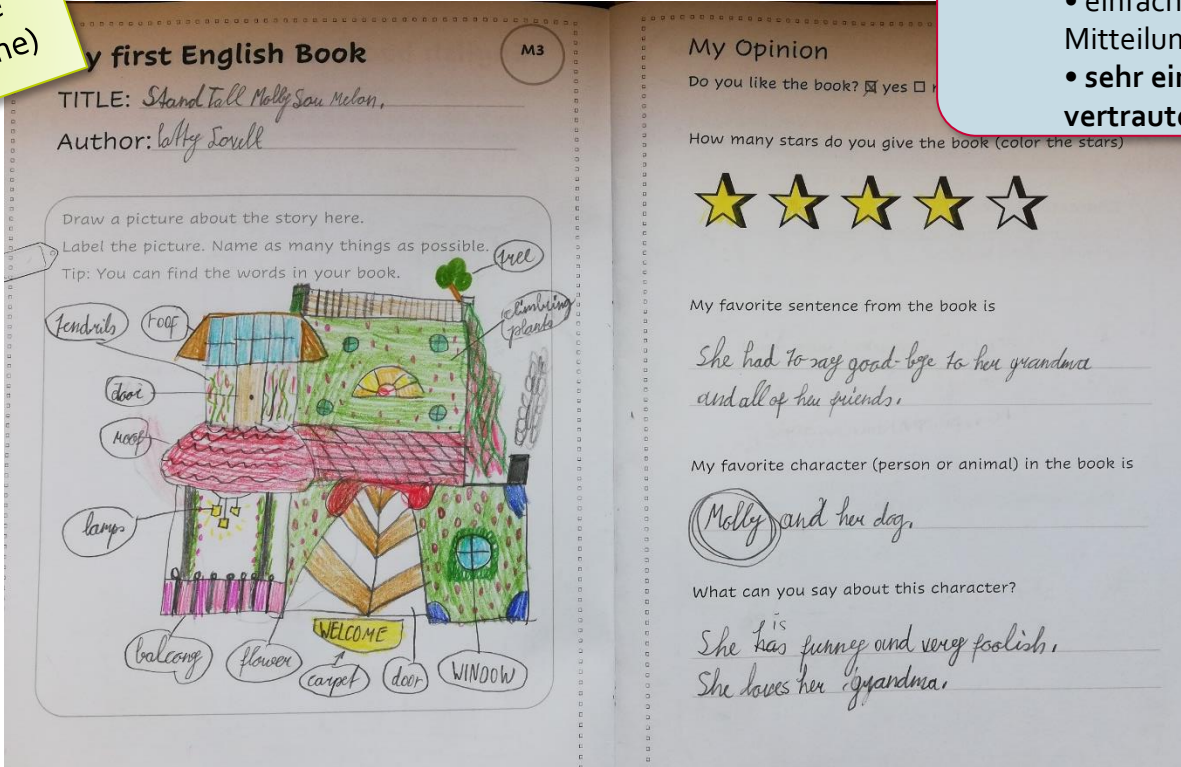 he)
y first English Book
M3
TITLE: Stand Tall Molly Lou Melon.
Author: Patty Lovell
Draw a picture about the story here.
Label the picture. Name as many things as possible.
Tip: You can find the words in your book.
tree
climbing
plants
tendrils
roof
door
roof
lamps
WELCOME
balcony
flower
carpet
door
WINDOW
• einfach
Mitteilun
• sehr ein
vertraute
My Opinion
Do you like the book? ☒ yes ☐
How many stars do you give the book (color the stars)
My favorite sentence from the book is
She had to say good-bye to her grandma
and all of her friends.
My favorite character (person or animal) in the book is
Molly and her dog.
What can you say about this character?
is
She has funney and very foolish.
She loves her grandma.